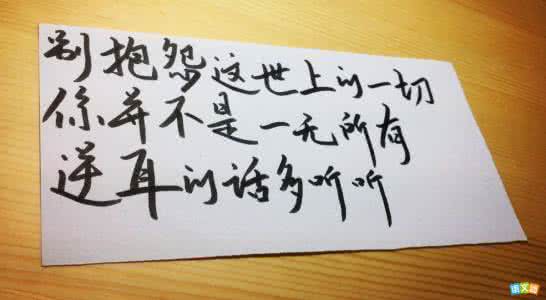 别抱怨这世上的一切
你并不是一无所有
逆耳的话多听听